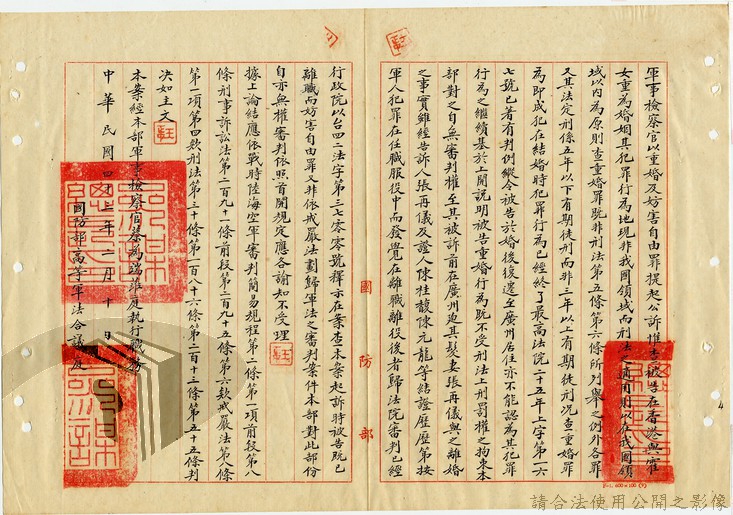 軍事檢察官以重婚及妨害自由罪提起公訴惟查被告在香港與霍
女重為婚姻其犯罪行為地現非我國領域而刑法之適用則以在我國領
域以內為原則查重婚罪既非刑法第五條第六條所列舉之例外各罪
又其法定刑係五年以下有期徒刑而非三年以上有期徒刑况查重婚罪
為即成犯在結婚時犯罪行為已經終了最高法院二十五年上字第一六
七號已著有判例縱令被告於婚後復遷至廣州居住亦不能認為其犯罪
行為之繼續基於上開說明被告重婚行為既不受刑法上刑罰權之拘束本
部對之自無審判權至其被訴前在廣州迫其髮妻張再儀與之離婚
之事實雖經告訴人張再儀及證人陳桂馥陳元龍等結證歷歷第按
軍人犯罪在任職服役中而發覺在離職離役後者歸法院審判已經
國防部
行政院以台四二法字第三七〇〇號釋示在案查本案起訴時被告既已
離職而妨害自由罪又非依戒嚴法劃歸軍法之審判案件本部對此部份
自亦無權審判依照首開規定應各諭知不受理
據上論結應依戰時陸海空軍審判簡易規程第一條第一項前段第八
條刑事訴訟法第二百九十一條前段第二百九十五條第六款戒嚴法第八條
第一項第四款刑法第三十條第一百八十六條第二百十三條第五十五條判
決如主文
本案經本部軍事檢察官蔡為瑞蒞庭執行職務
中華民國四十三年二月十日
國防部高等軍法合議庭
4
請合法使用公開之影像